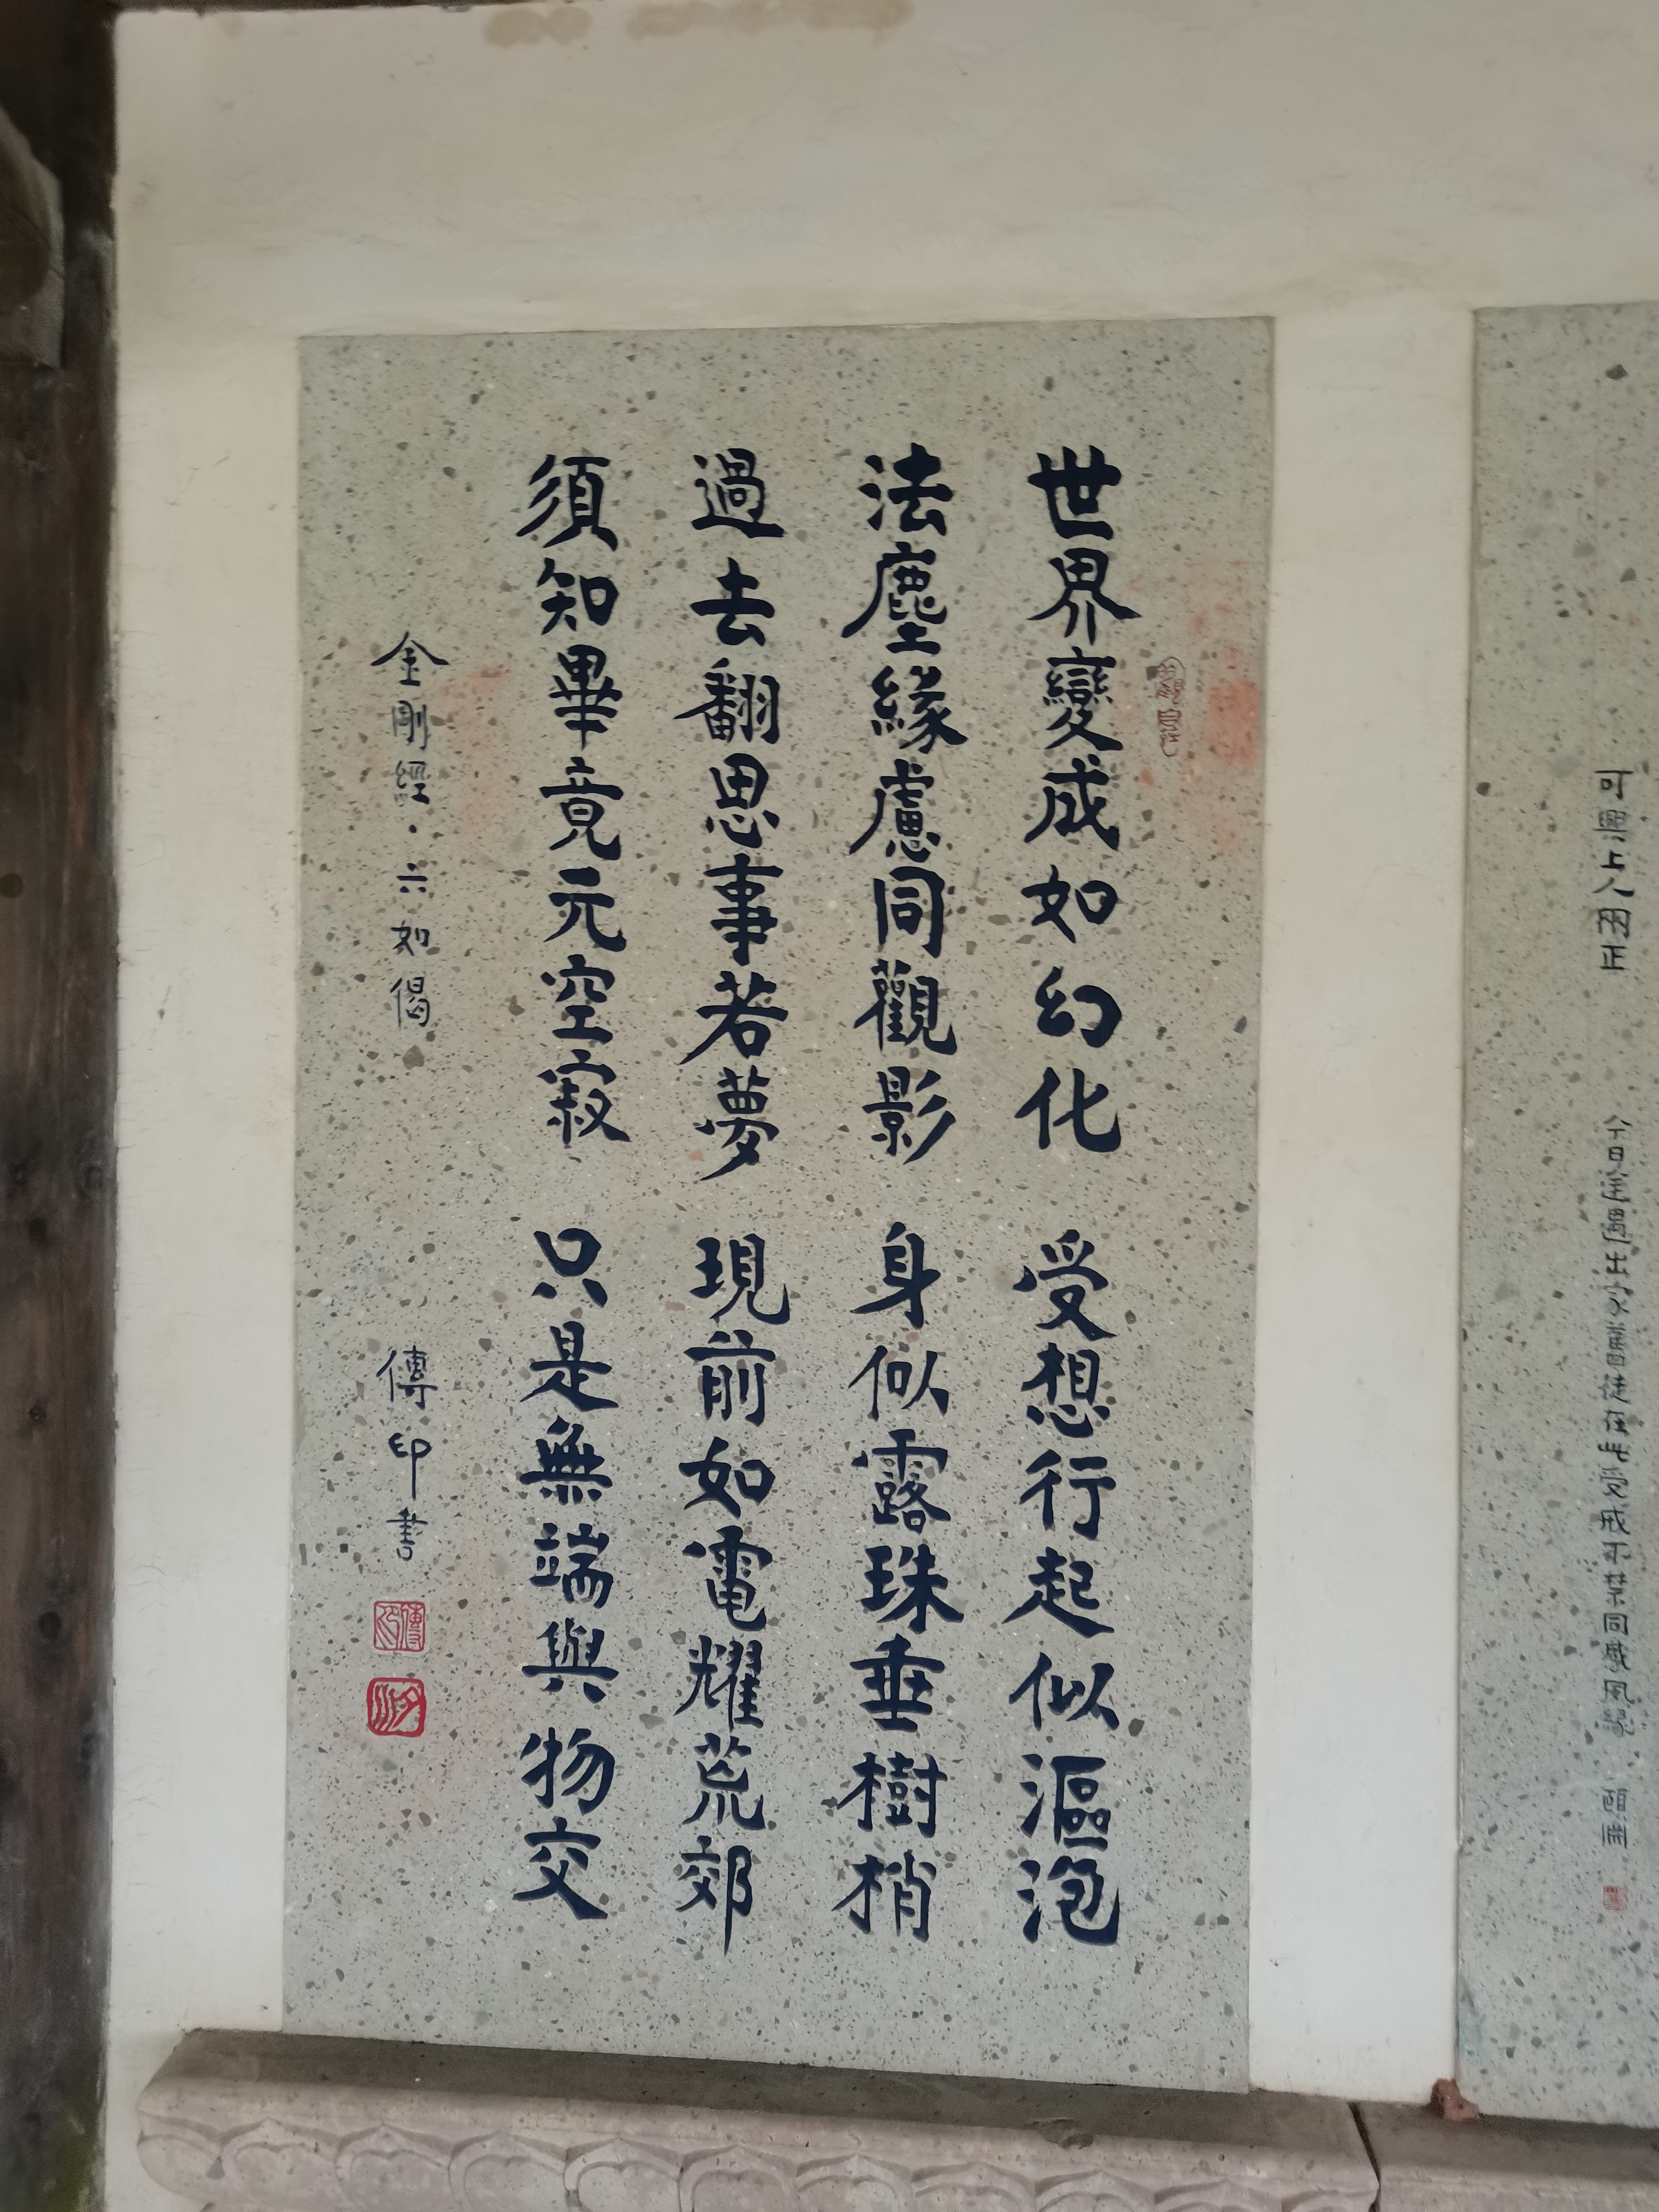 世界變成如幻化 受想行起似漚泡
法塵緣慮同觀影 身似露珠垂樹梢
過去翻思事若夢 現前如電耀荒郊
須知畢竟元空寂 只是無端與物交
金剛經·六如偈 傳印書
傳印
可興上人兩正
今日筵遇出家舊徒在此受戒不禁同感夙緣